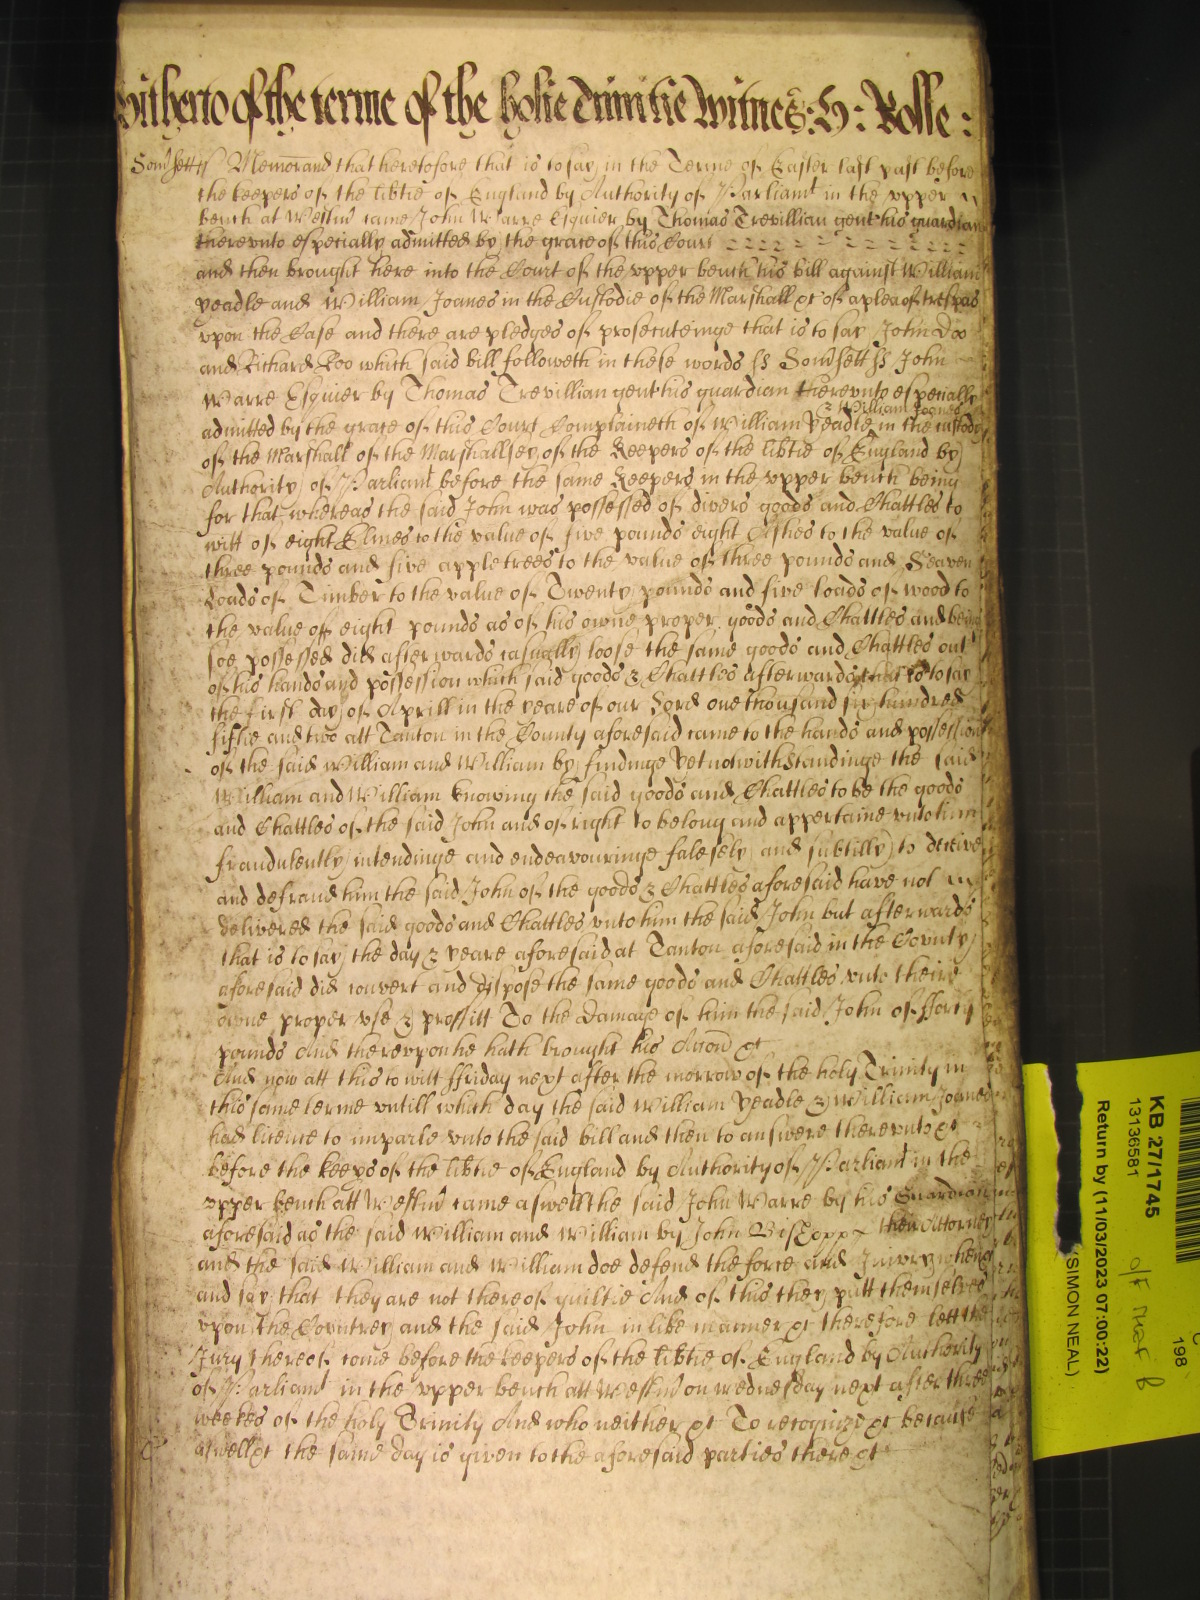 hitherto of the terme of the holie Trinitie Witnes: H: Rolle:
Som̃sett ss Memorand that heretofore that is to say in the Terme of Easter last past before
the keepers of the lib̃tie of England by Authority of Parliamt in the vpper
bench at Westm̃ came John Warre Esquier by Thomas Trevillian gent his guardian
therevnto especially admitted by the grace of this Court
and then brought here into the Court of the vpper bench his bill against William
Yeadle and William Joanes in the Custodie of the Marshall &c of a plea of trespas
vpon the Case and there are pledges of prosecuteinge that is to say John Doo
and Richard Roo which said bill followeth in these words ss Som̃sett ss John
Warre Esquier by Thomas Trevillian gent his guardian therevnto especially
& William Joanes
admitted by the grace of this Court Complaineth of William Yeadle in the custody
of the Marshall of the Marshallsey of the Keepers of the lib̃tie of England by
Authority of Parliamt before the same Keepers in the vpper bench being
for that whereas the said John was possessed of divers goods and Chattles to
witt of eight Elmes to the value of five pounds eight Ashes to the value of
three pounds and five apple trees to the value of three pounds and Seaven
Loads of Timber to the value of Twenty pounds and five loads of wood to
the value off eight pounds as of his owne proper goods and Chattles and being
soe possessed did afterwards casually loose the same goods and Chattles out
of his hands and possession which said goods & Chattles afterwards that is to say
the first day of Aprill in the yeare of our Lord one thousand six hundred
fiftie and two att Tanton in the County aforesaid came to the hands and possession
of the said William and William by findinge Yet notwithstandinge the said
William and William knowing the said goods and Chattles to be the goods
and Chattles of the said John and of right to belong and appertaine vnto him
fraudulently intendinge and endeavouringe falesely and subtilly to deceive
and defraud him the said John of the goods & Chattles aforesaid have not
delivered the said goods and Chattles vnto him the said John but afterwards
that is to say the day & yeare aforesaid at Tanton aforesaid in the County
aforesaid did convert and dispose the same goods and Chattles vnto theire
owne proper vse & proffitt To the Damage of him the said John of fforty
pounds And therevpon he hath brought his Accõn &c
And now att this to witt ffriday next after the morrow of the holy Trinity in
this same terme vntill which day the said William Yeadle & William Joanes
had licence to imparle vnto the said bill and then to answere therevnto &c
before the keep̃s of the lib̃tie of England by Authority of Parliamt in the
vpper bench att Westm̃ came aswell the said John Warre by his Guardian
aforesaid as the said William and William by John Bishopp their Attorney
and the said William and William doe defend the force and Iniury when &c
and say that they are not thereof guiltie And of this they putt themselves
vpon the Countrey and the said John in like manner &c therefore lett the
Jury thereof come before the keepers of the lib̃tie of England by Authority
of Parliamt in the vpper bench att Westm̃ on wednesday next after three
weekes of the holy Trinity And who neither &c To recognize &c because
aswell &c the same day is given to the aforesaid parties there &c
KB 27/1745
13136581
198
Return by (11/03/2023 07:00:22)
(SIMON NEAL)